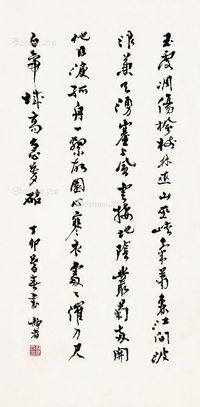 玉露凋傷楓樹林巫山巫峽氣蕭森江間波
浪兼天湧塞上風雲接地陰叢菊兩開
他日淚孤舟一繫故園心寒衣處々催刀尺
白帝城高急暮砧
丁卯春書